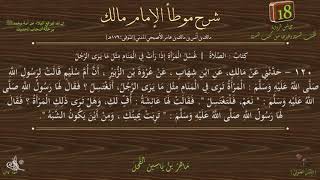 شرح موطأ الإمام مالك
18
كتاب : الصلاة | غسل المرأة إذا رأت في المنام مثل ما يرى الرجل
١٢٠ - حدثني عن مالك، عن ابن شهاب، عن عروة بن الزبير، أن أم سليم قالت لرسول الله
صلى الله عليه وسلم : المرأة ترى في المنام مثل ما يرى الرجل، أتغتسل ؟ فقال لها رسول الله
صلى الله عليه وسلم : " نعم، فلتغتسل ". فقالت لها عائشة : أف لك، وهل ترى ذلك المرأة ؟ فقال
لها رسول الله صلى الله عليه وسلم : " تربت يمينك ، ومن أين يكون الشبه ".
ماهر بن ياسين الفحل